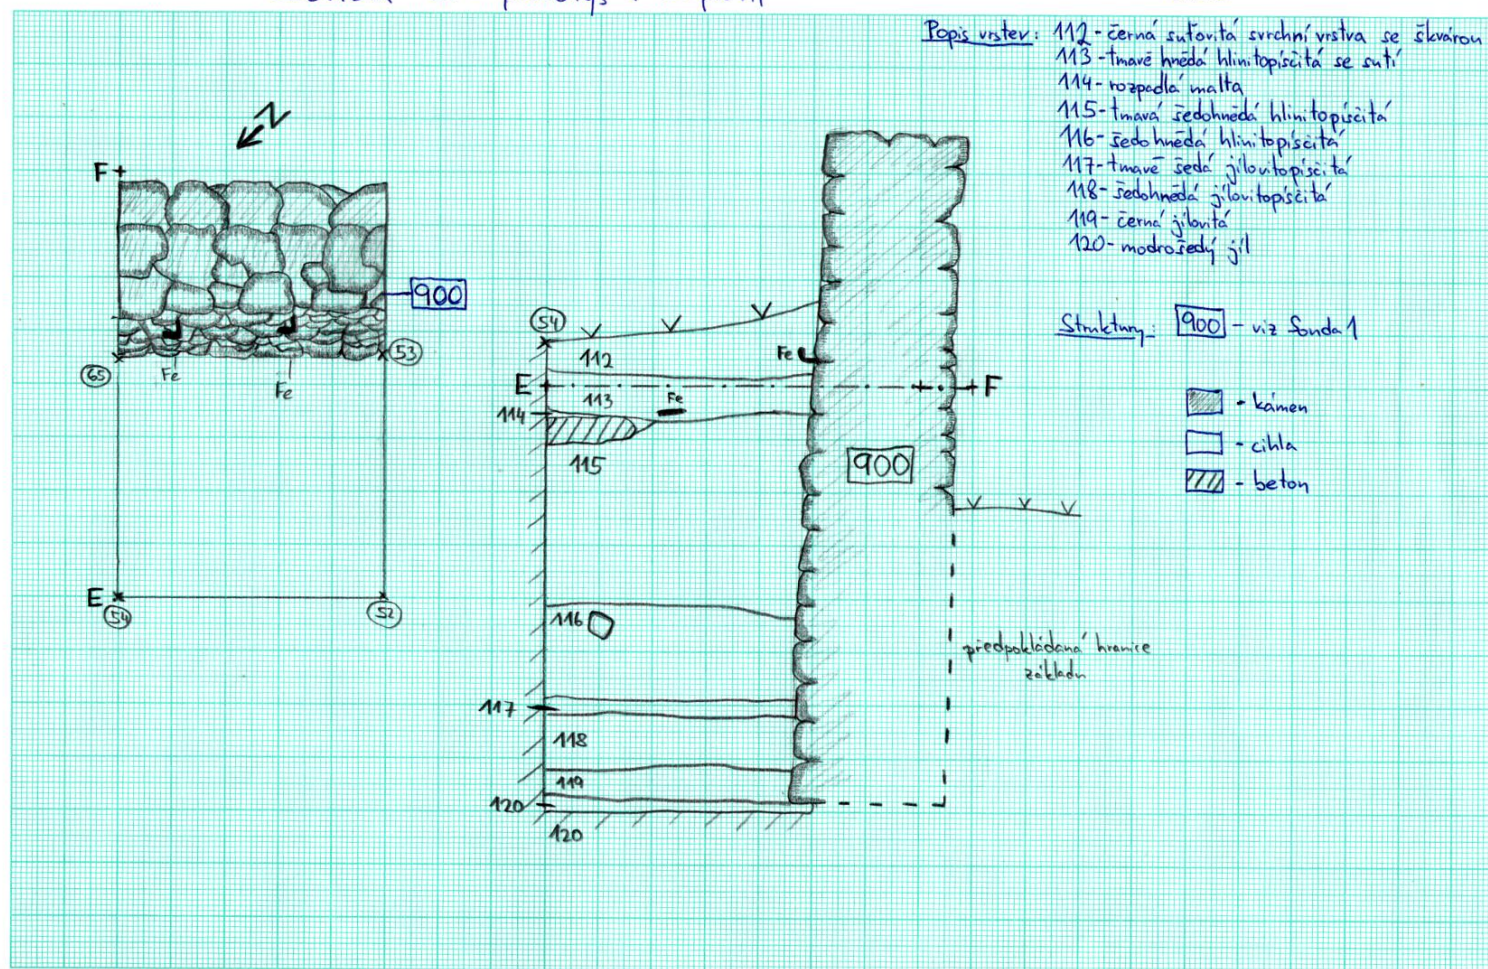 Popis vrstev: 112 - černá suťovitá svrchní vrstva se škvárou
113 - tmavě hnědá hlinitopísčitá se sutí
114 - rozpadlá malta
115 - tmavá šedohnědá hlinitopísčitá
116 - šedohnědá hlinitopísčitá
117 - tmavě šedá jílovitopísčitá
118 - šedohnědá jílovitopísčitá
119 - černá jílovitá
120 - modrošedý jíl
Struktury: 900 - viz Sonda 1
- kámen
- cihla
- beton
N
F
900
65
53
Fe
Fe
E
54
52
54
112
Fe
E
F
113
Fe
114
115
900
116
předpokládaná hranice
základu
117
118
119
120
120